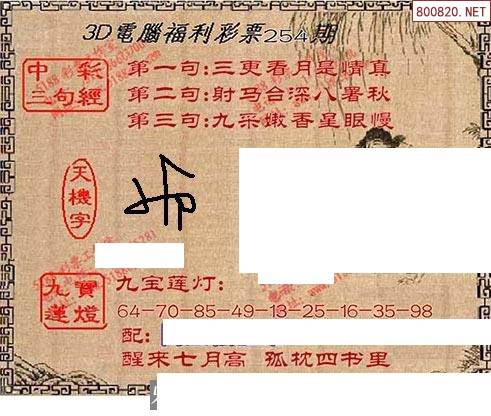 800820.NET
3D電腦福利彩票254期
中彩
三句經
第一句:三更看月是情真
第二句:射马台深八署秋
第三句:九采嫩香星眼慢
天機字
九寶蓮燈
九宝莲灯:
64-70-85-49-13-25-16-35-98
配:
醒来七月高 孤枕四书里